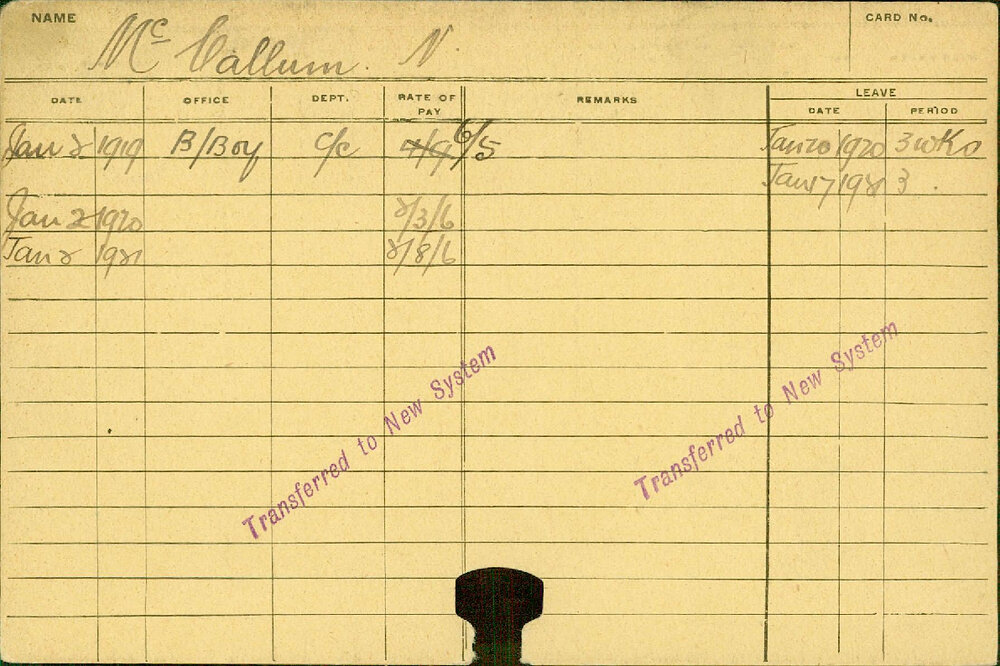 NAME Mc Callum. N. CARD No.
DATE OFFICE DEPT. RATE OF PAY REMARKS LEAVE
DATE PERIOD
Jan 2 1919 B/Boy C/c 6/5 Jan 20 1920 3 wKs
Jan 17 1921 3.
Jan 2 1920 2/3/6
Jan 2 1921 2/8/6
Transferred to New System
Transferred to New System